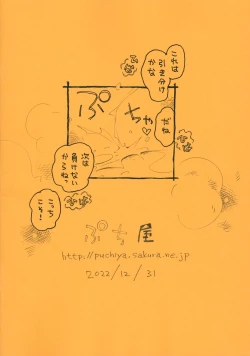 これは
引き分け
かな
だね
ぷちゃ♡
次は
負けない
からね。
こっち
こそ!
ぷち屋
http://puchiya.sakura.ne.jp
2022/12/31